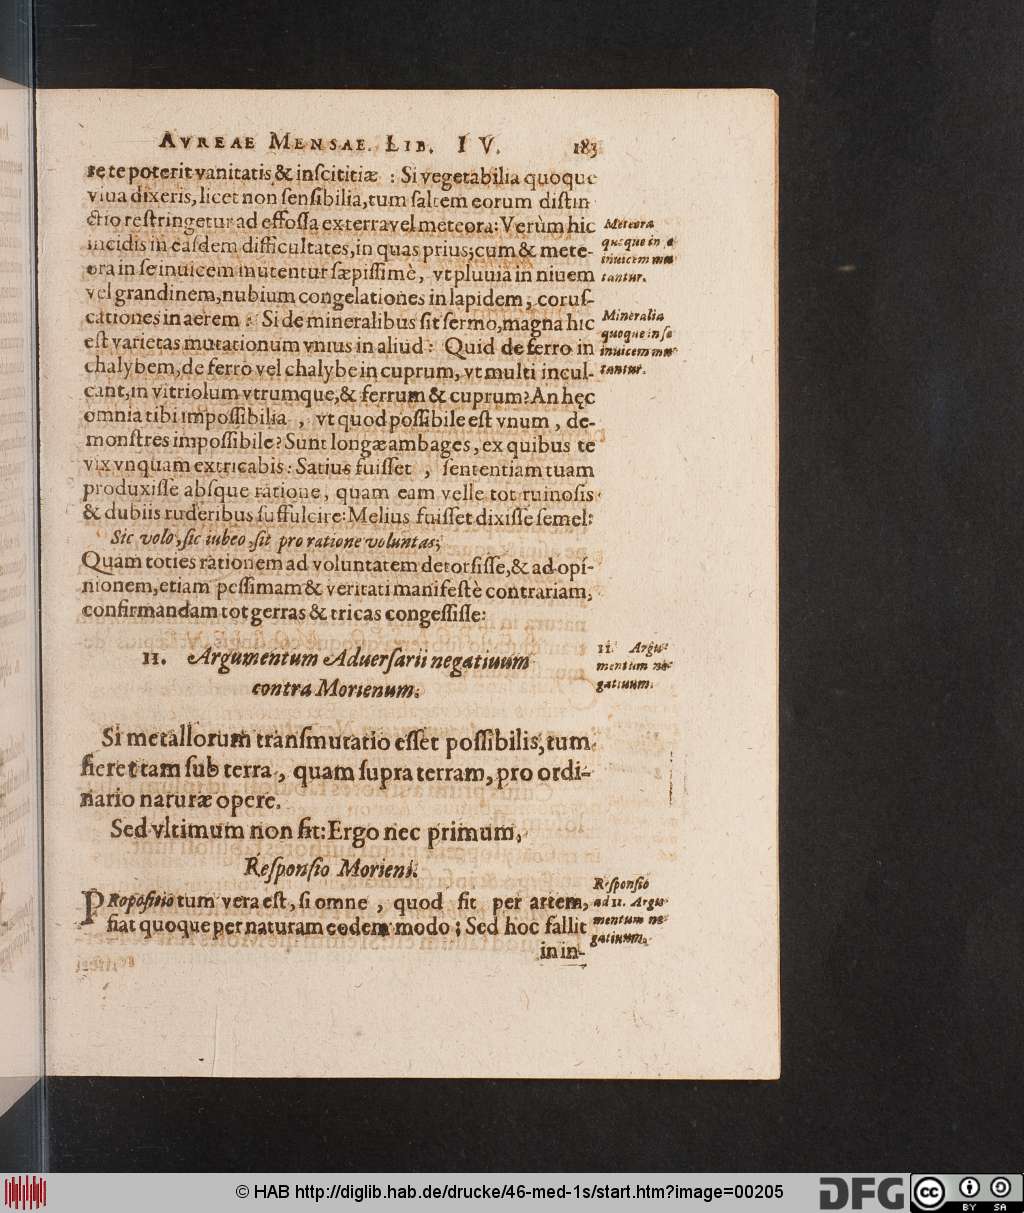 AVREAE MENSAE. LIB. IV. 183
te poterit vanitatis & inſcitiæ : Si vegetabilia quoque
viua dixeris, licet non ſenſibilia, tum ſaltem eorum diſtin
ctio reſtringetur ad effoſſa ex terra vel meteora: Verùm hic
incidis in eaſdem difficultates, in quas prius; cum & mete-
ora in ſe inuicem mutentur ſæpiſſimè, vt pluuia in niuem
vel grandinem, nubium congelationes in lapidem, coruſ-
cationes in aerem : Si de mineralibus ſit ſermo, magna hic
eſt varietas mutationum vnius in aliud: Quid de ferro in
chalybem, de ferro vel chalybe in cuprum, vt multi incul-
cant, in vitriolum vtrumque, & ferrum & cuprum? An hęc
omnia tibi impoſſibilia , vt quod poſſibile eſt vnum, de-
monſtres impoſſibile? Sunt longæ ambages, ex quibus te
vix vnquam extricabis: Satius fuiſſet , ſententiam tuam
produxiſſe abſque ratione, quam eam velle tot ruinoſis
& dubiis ruderibus ſuffulcire: Melius fuiſſet dixiſſe ſemel:
Sic volo, ſic iubeo, ſit pro ratione voluntas;
Quam toties rationem ad voluntatem detorſiſſe, & ad opi-
nionem, etiam peſſimam & veritati manifeſtè contrariam,
confirmandam tot gerras & tricas congeſſiſſe:
Meteora
quoque in ſe
inuicem mu
tantur.
Mineralia
quoque in ſe
inuicem mu
tantur.
11. Argumentum Aduerſarii negatiuum
contra Morienum.
11. Argu-
mentum ne-
gatiuum.
Si metallorum tranſmutatio eſſet poſſibilis, tum
fieret tam ſub terra, quam ſupra terram, pro ordi-
nario naturæ opere.
Sed vltimum non fit: Ergo nec primum.
Reſponſio Morieni.
PRopoſitio tum vera eſt, ſi omne , quod fit per artem,
fiat quoque per naturam eodem modo; Sed hoc fallit
in in-
Reſponſio
ad 11. Argu-
mentum ne-
gatiuum.
© HAB http://diglib.hab.de/drucke/46-med-1s/start.htm?image=00205
DFG
cc BY SA